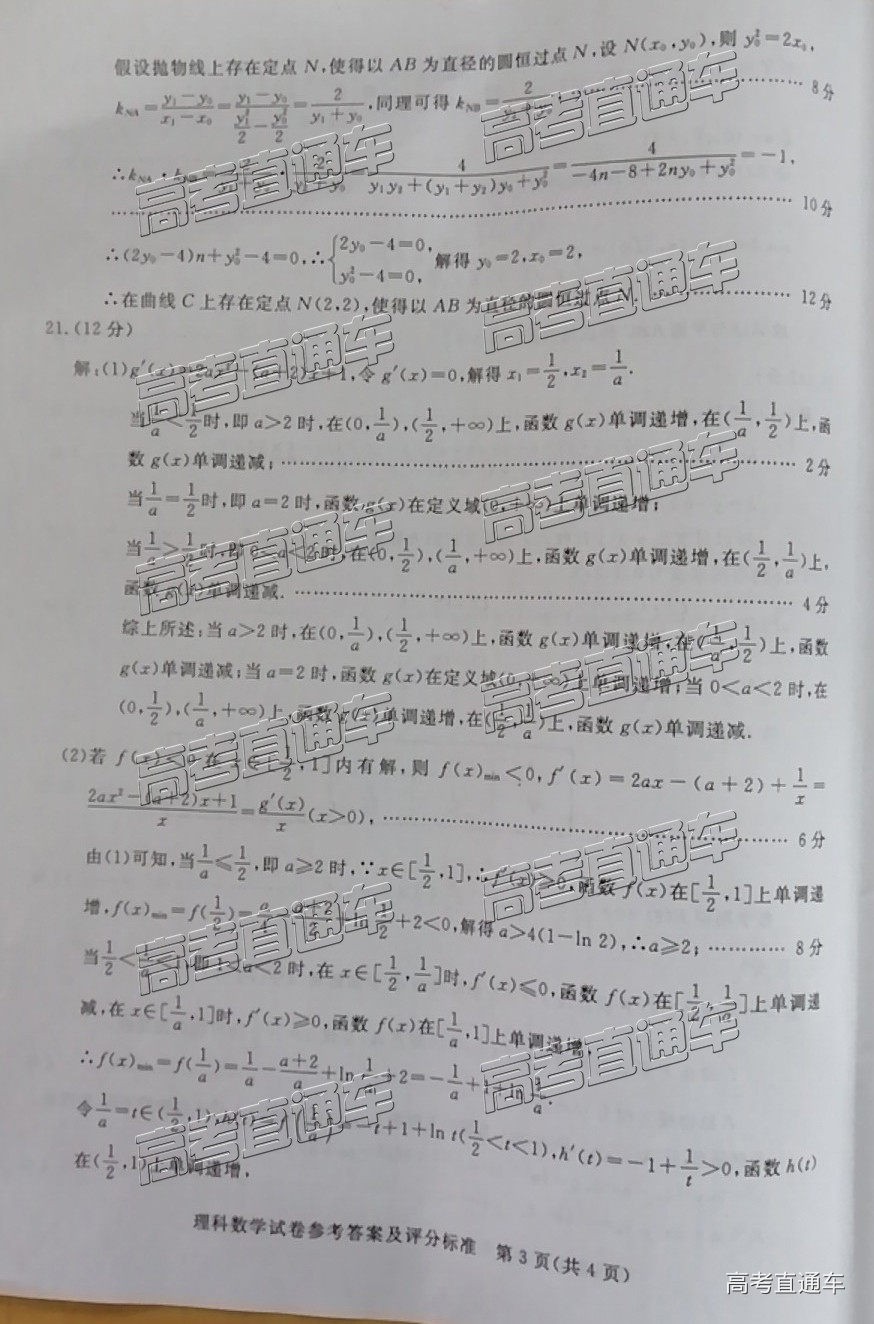 假设抛物线上存在定点 N,使得以 AB 为直径的圆恒过点 N,设 N(x₀,y₀),则 y₀²=2x₀,
k_NA=(y₁-y₀)/(x₁-x₀)=(y₁-y₀)/(y₁²/2-y₀²/2)=2/(y₁+y₀),同理可得 k_NB=2/(y₂+y₀), …… 8分
∴k_NA·k_NB=2/(y₁+y₀)·2/(y₂+y₀)=4/(y₁y₂+(y₁+y₂)y₀+y₀²)=4/(-4n-8+2ny₀+y₀²)=-1,
…… 10分
∴(2y₀-4)n+y₀²-4=0,∴{2y₀-4=0, y₀²-4=0, 解得 y₀=2,x₀=2,
∴在曲线 C 上存在定点 N(2,2),使得以 AB 为直径的圆恒过点 N. …… 12分
21.(12分)
解:(1)g′(x)=2ax²-(a+2)x+1,令 g′(x)=0,解得 x₁=1/2,x₂=1/a.
当1/a<1/2时,即 a>2 时,在(0,1/a),(1/2,+∞)上,函数 g(x)单调递增,在(1/a,1/2)上,函
数 g(x)单调递减; …… 2分
当1/a=1/2时,即 a=2 时,函数 g(x)在定义域(0,+∞)上单调递增;
当1/a>1/2时,即 0<a<2 时,在(0,1/2),(1/a,+∞)上,函数 g(x)单调递增,在(1/2,1/a)上,
函数 g(x)单调递减. …… 4分
综上所述:当 a>2 时,在(0,1/a),(1/2,+∞)上,函数 g(x)单调递增,在(1/a,1/2)上,函数
g(x)单调递减;当 a=2 时,函数 g(x)在定义域(0,+∞)上单调递增;当 0<a<2 时,在
(0,1/2),(1/a,+∞)上,函数 g(x)单调递增,在(1/2,1/a)上,函数 g(x)单调递减.
(2)若 f(x)<0 在 x∈[1/2,1]内有解,则 f(x)min<0,f′(x)=2ax-(a+2)+1/x=
(2ax²-(a+2)x+1)/x=g′(x)/x(x>0), …… 6分
由(1)可知,当1/a≤1/2,即 a≥2 时,∵x∈[1/2,1],∴f′(x)≥0,函数 f(x)在[1/2,1]上单调递
增,f(x)min=f(1/2)=a/4-(a+2)/2+ln 1/2+2<0,解得 a>4(1-ln 2),∴a≥2; …… 8分
当1/2<1/a<1,即 1<a<2 时,在 x∈[1/2,1/a]时,f′(x)≤0,函数 f(x)在[1/2,1/a]上单调递
减,在 x∈[1/a,1]时,f′(x)≥0,函数 f(x)在[1/a,1]上单调递增,
∴f(x)min=f(1/a)=1/a-(a+2)/a+ln 1/a+2=-1/a+1+ln 1/a.
令1/a=t∈(1/2,1),h(t)=f(1/a)=-t+1+ln t(1/2<t<1),h′(t)=-1+1/t>0,函数 h(t)
在(1/2,1)上单调递增,
理科数学试卷参考答案及评分标准 第 3 页(共 4 页)
高考直通车